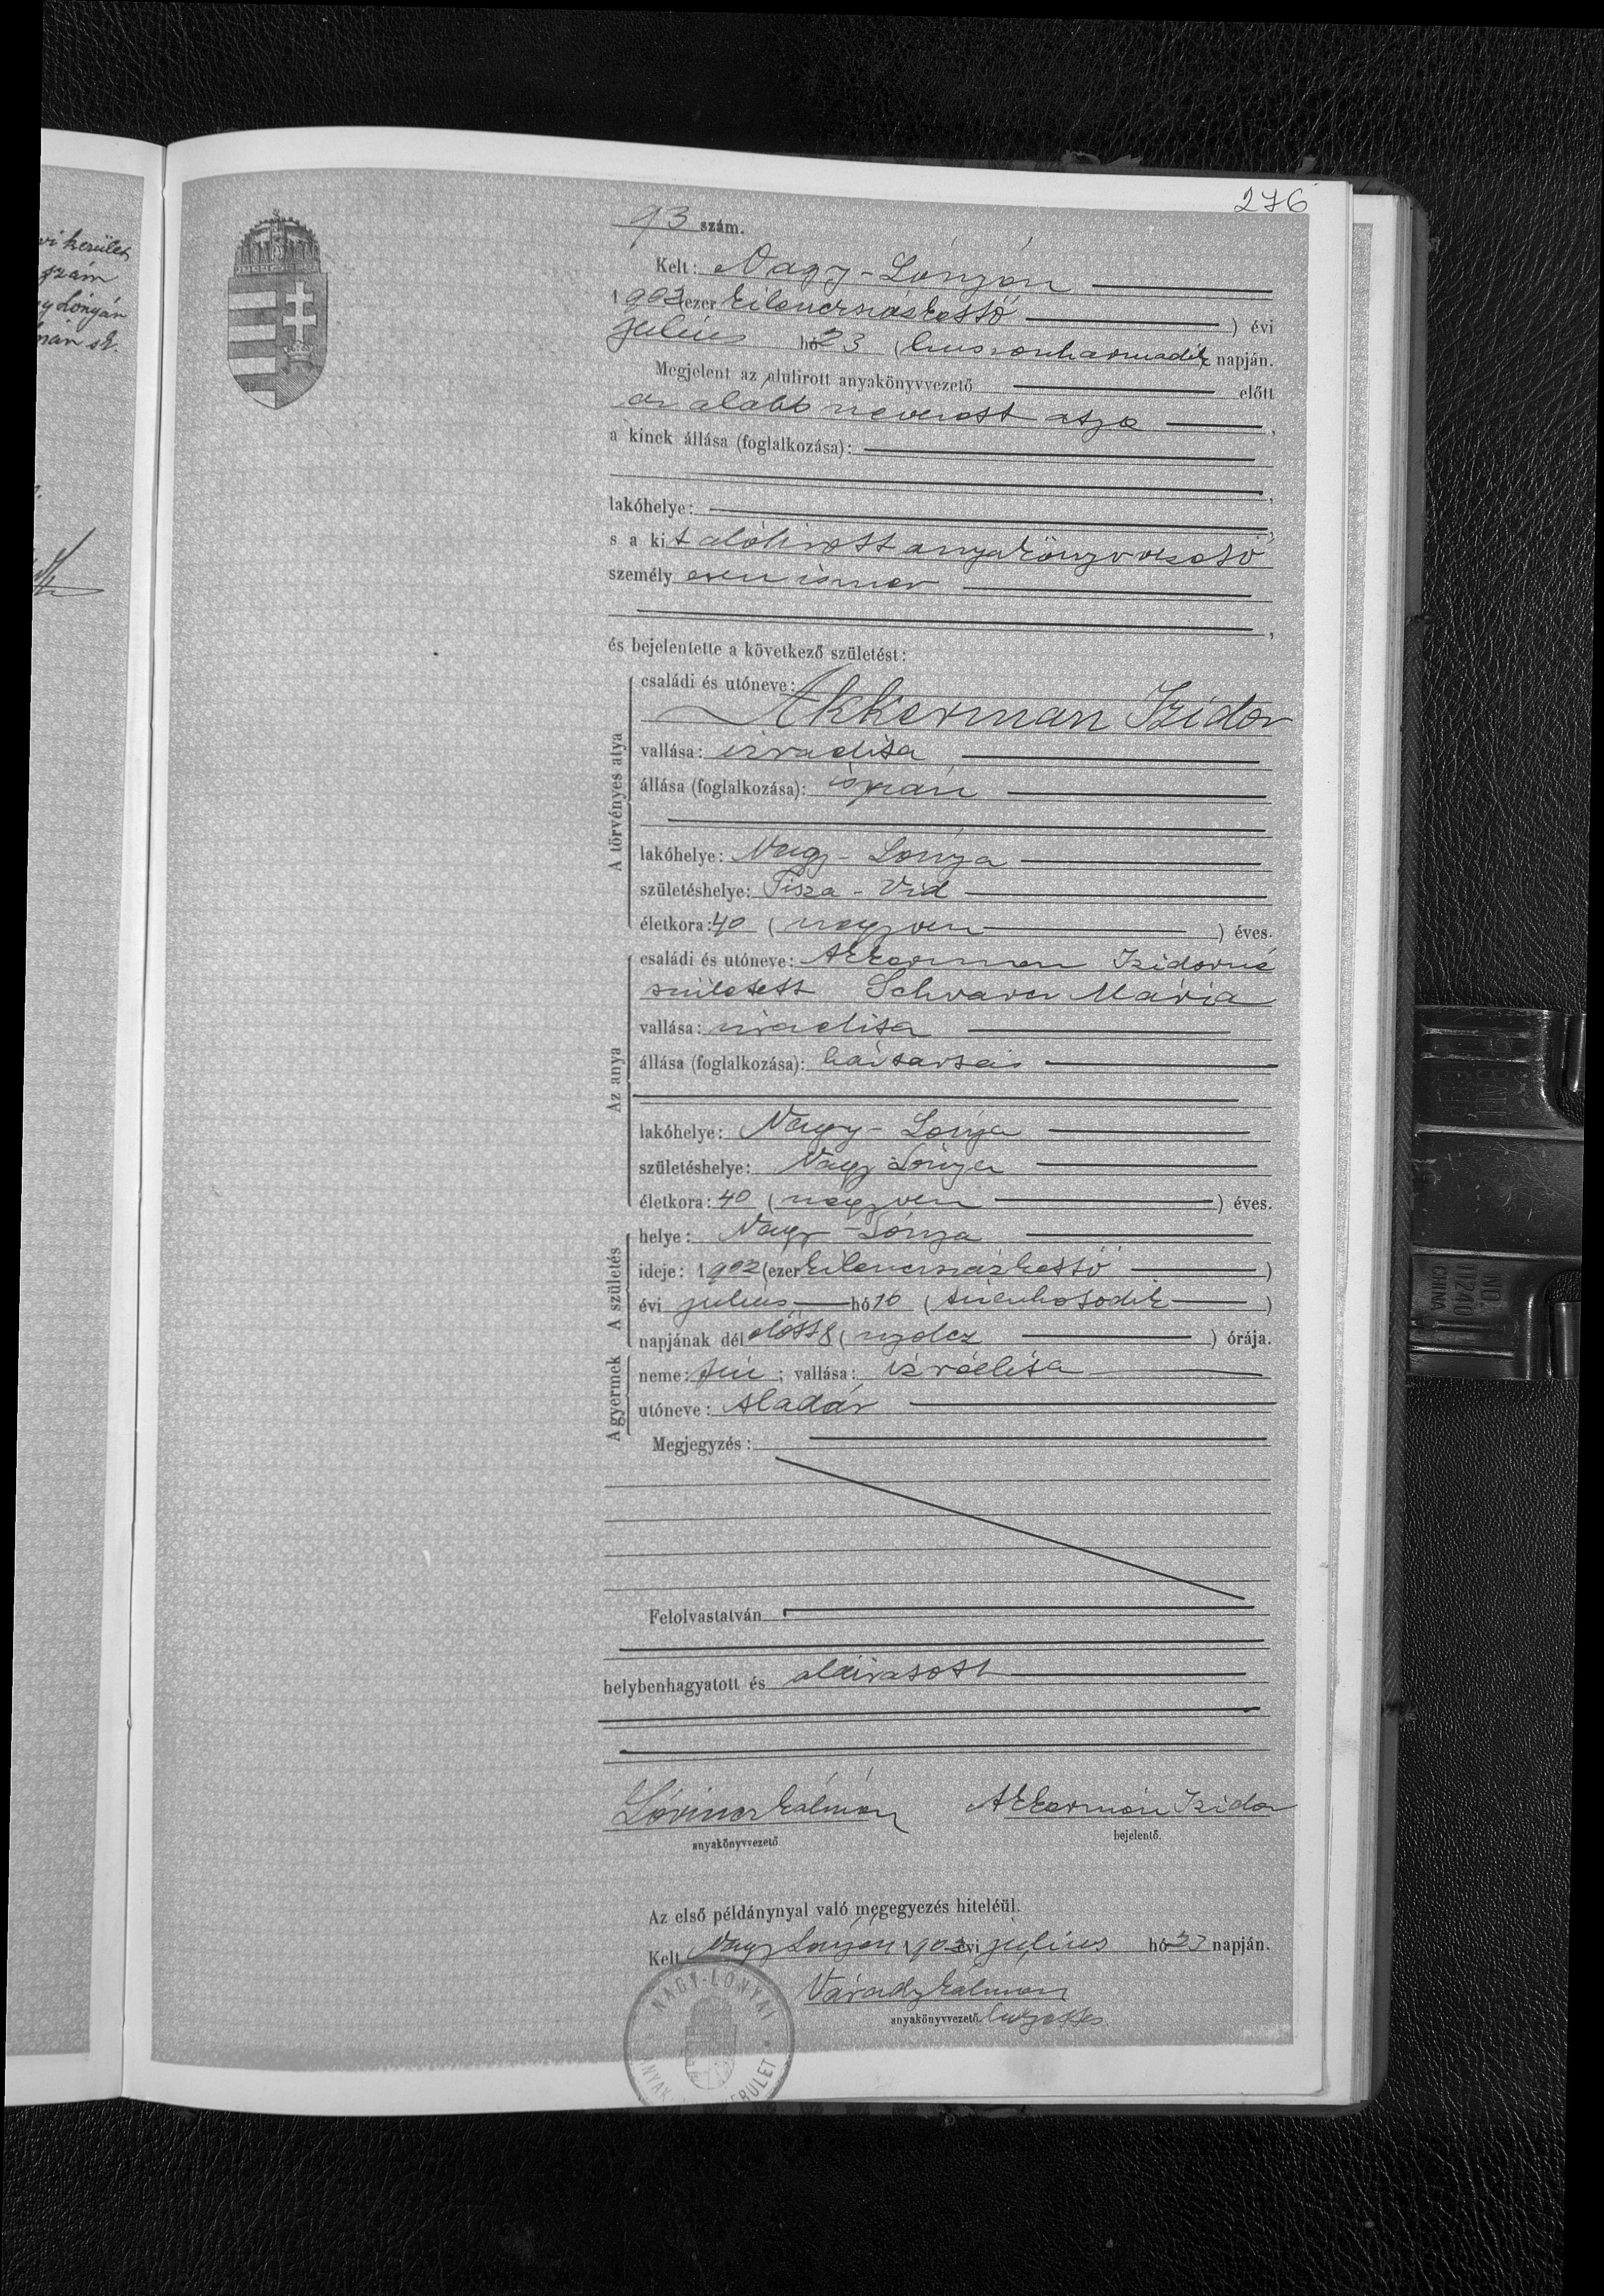 vi kerület
szám
y Lónyán
mán sk.
276
93 szám.
Kelt: Nagy-Lónyán
1902 (ezer kilenczszázkettő ) évi
julius hó 23 (huszonharmadik napján.
Megjelent az alulirott anyakönyvvezető előtt
az alább nevezett atya,
a kinek állása (foglalkozása):
,
lakóhelye:
,
s a kit alólirott anyakönyvvezető
személyesen ismer
,
és bejelentette a következő születést:
A törvényes atya
családi és utóneve:
Akkerman Izidor
vallása: izraelita
állása (foglalkozása): ispán
lakóhelye: Nagy-Lónya
születéshelye: Tisza-Vid
életkora: 40 (negyven ) éves.
Az anya
családi és utóneve: Akkerman Izidorné
született Schvarcz Mária
vallása: izraelita
állása (foglalkozása): háztartás
lakóhelye: Nagy-Lónya
születéshelye: Nagy Lónya
életkora: 40 (negyven ) éves.
A születés
helye: Nagy-Lónya
ideje: 1902 (ezer kilenczszázkettő )
évi julius hó 16 (tizenhatodik )
napjának délelőtt 8 (nyolcz ) órája.
A gyermek
neme: fiú; vallása: izraelita
utóneve: Aladár
Megjegyzés:
Felolvastatván
helybenhagyatott és aláiratott
Kálmán Akkermán Izidor
anyakönyvvezető bejelentő.
Az első példánynyal való megegyezés hiteléül.
Kelt Nagy Lónyán 1902 évi julius hó 23 napján.
Várady Kálmán
anyakönyvvezető helyettes
NAGY-LÓNYAI
ANYAK KERÜLET
NO. 0240
CHINA